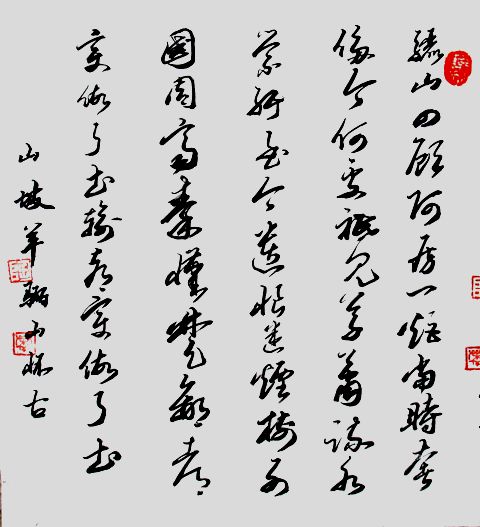 驪山四顧阿房一炬當時奢
侈今何處祇見草蕭疏水
縈紆至今遺恨迷煙樹列
國周齊秦漢楚贏都
變做了土輸都變做了土
山坡羊驪山怀古